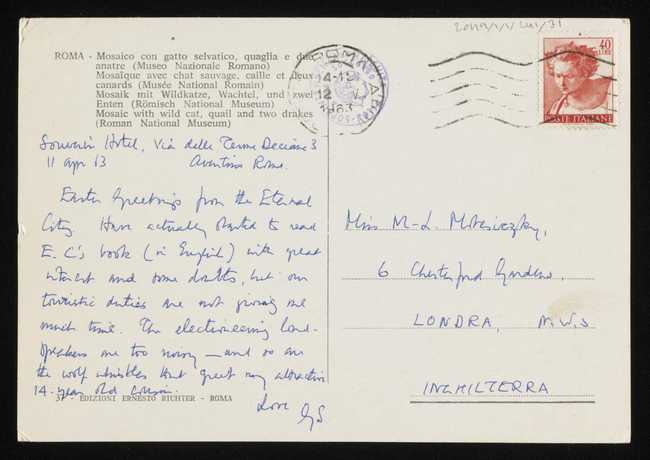 ROMA - Mosaico con gatto selvatico, quaglia e due
anatre (Museo Nazionale Romano)
Mosaïque avec chat sauvage, caille et deux
canards (Musée National Romain)
Mosaik mit Wildkatze, Wachtel, und zwei
Enten (Römisch National Museum)
Mosaic with wild cat, quail and two drakes
(Roman National Museum)
Hotel, Via delle Terme Deciane 3
11 apr 63 Aventino Rome.
Easter Greetings from the Eternal
City. Have actually started to read
E.C.'s book (in English) with great
interest and some doubts, but our
touristic duties are not giving me
much time. The electioneering loud-
speakers are too noisy — and so are
the wolf whistles that greet my attractive
14-year old cousin.
Love GS
EDIZIONI ERNESTO RICHTER - ROMA
ROMA
1963
40
LIRE
POSTE ITALIANE
Miss M-L. Motesiczky,
6 Chesterford Gardens,
LONDRA, N.W.3
INGHILTERRA